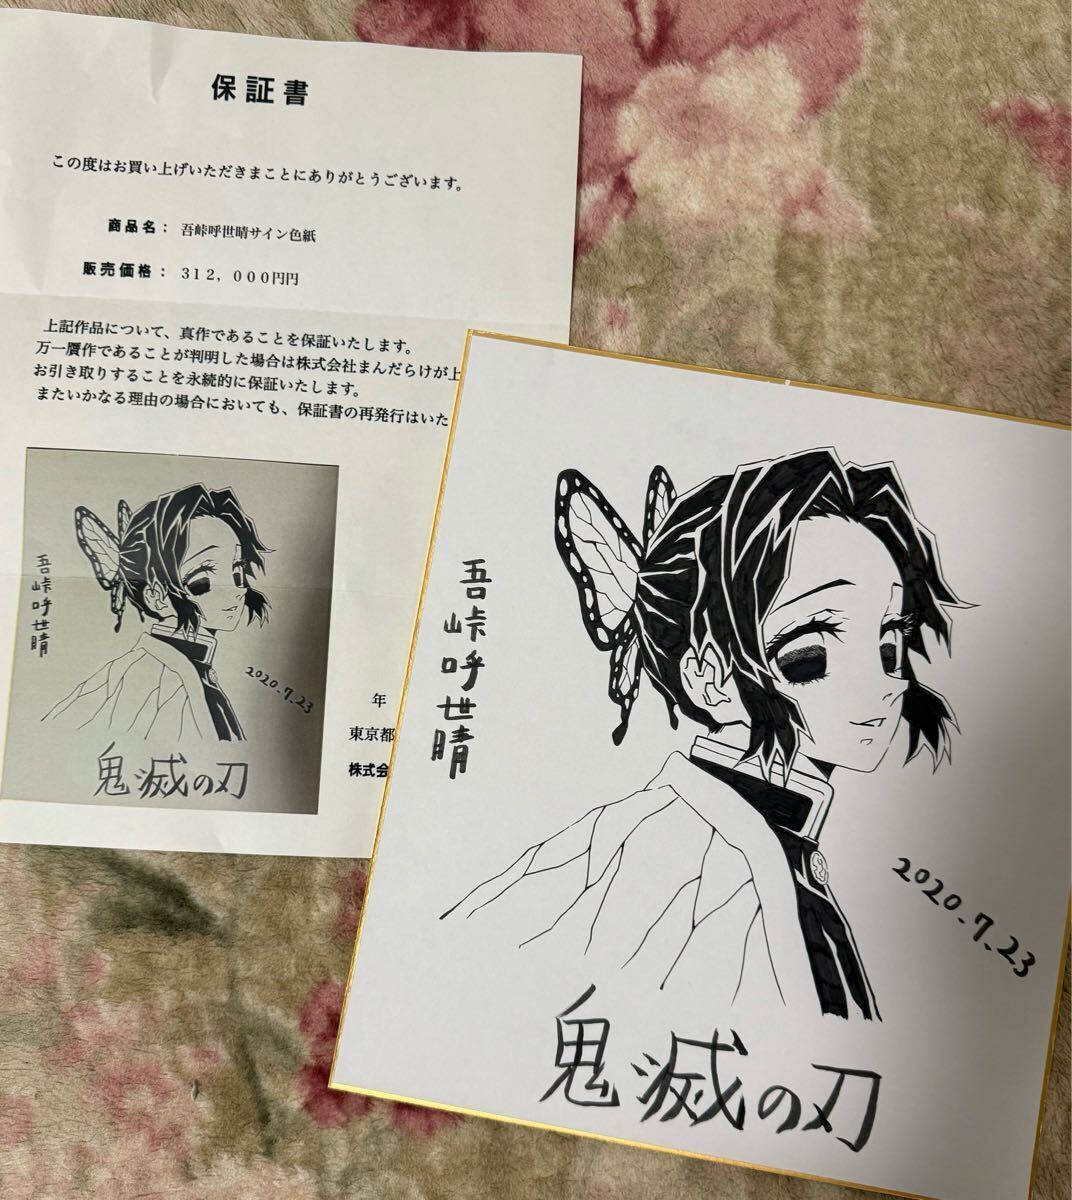 保証書
この度はお買い上げいただきまことにありがとうございます。
商品名： 吾峠呼世晴サイン色紙
販売価格： 312，000円円
上記作品について、真作であることを保証いたします。
万一贋作であることが判明した場合は株式会社まんだらけが上
お引き取りすることを永続的に保証いたします。
またいかなる理由の場合においても、保証書の再発行はいた
吾峠呼世晴
2020.7.23
鬼滅の刃
年
東京都
株式会
吾峠呼世晴
2020.7.23
鬼滅の刃